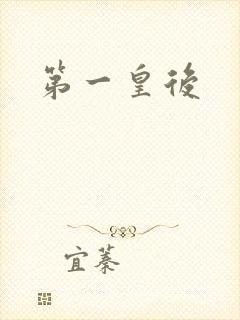 第一皇後
宜蓁